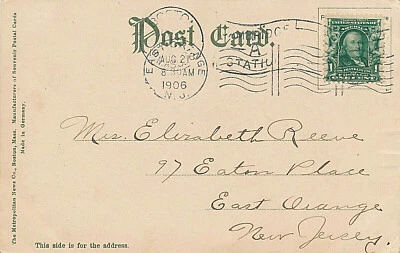 Post Card.
AUG 21
1906
N. J.
A
STATION
Mrs. Elizabeth Reeve
97 Eaton Place
East Orange
New Jersey.
The Metropolitan News Co., Boston, Mass. Manufacturers of Souvenir Postal Cards
Made in Germany.
This side is for the address.